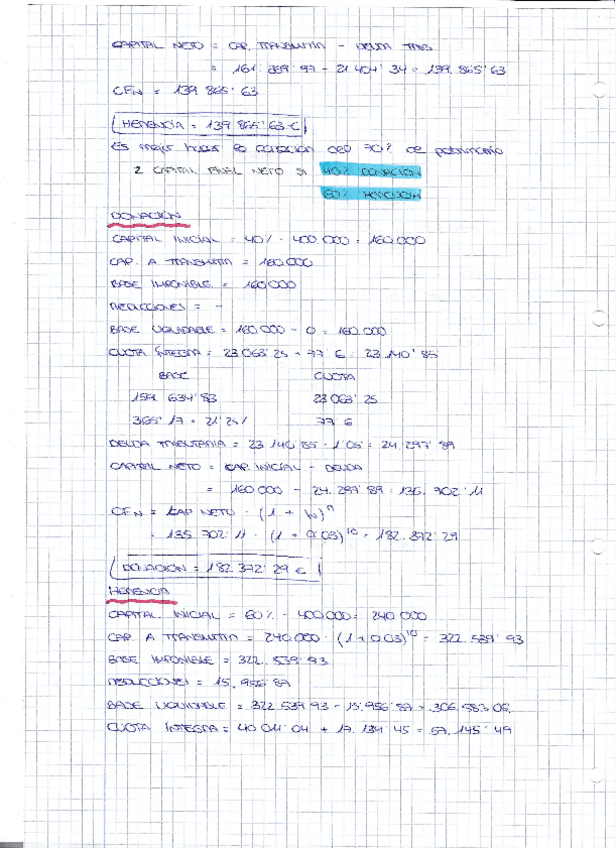 CAPITAL NETO = CAP. TRANSMITIR - DEUDA TRIB.
= 161.269'97 - 21 404'34 = 139.865'63
CFN = 139 865'63
HERENCIA = 139 865'63 €
Es mejor hacer la donación del 70% de patrimonio
2 CAPITAL FINAL NETO SI 40% DONACION
60% HERENCIA
DONACION
CAPITAL INICIAL = 40% · 400.000 = 160.000
CAP. A TRANSMITIR = 160.000
BASE IMPONIBLE = 160000
REDUCCIONES = -
BASE LIQUIDABLE = 160 000 - 0 = 160.000
CUOTA ÍNTEGRA = 23 063'25 + 77'6 = 23.140'85
BASE CUOTA
159 634'83 23 063'25
365'17 · 21'25% 77'6
DEUDA TRIBUTARIA = 23 140'85 · 1'05 = 24.297'89
CAPITAL NETO = CAP. INICIAL - DEUDA
= 160 000 - 24.297'89 = 135.702'11
CFN = CAP NETO · (1 + iN)n
= 135.702'11 · (1 + 0'03)10 = 182.372'29
DONACIÓN = 182.372'29 €
HERENCIA
CAPITAL. INICIAL = 60% · 400 000 = 240 000
CAP. A TRANSMITIR = 240.000 · (1+0.03)10 = 322.539'93
BASE IMPONIBLE = 322.539'93
REDUCCIONES = 15.956'87
BASE LIQUIDABLE = 322 539'93 - 15.956'87 = 306.583'06
CUOTA ÍNTEGRA = 40 011'04 + 17.134'45 = 57.145'49